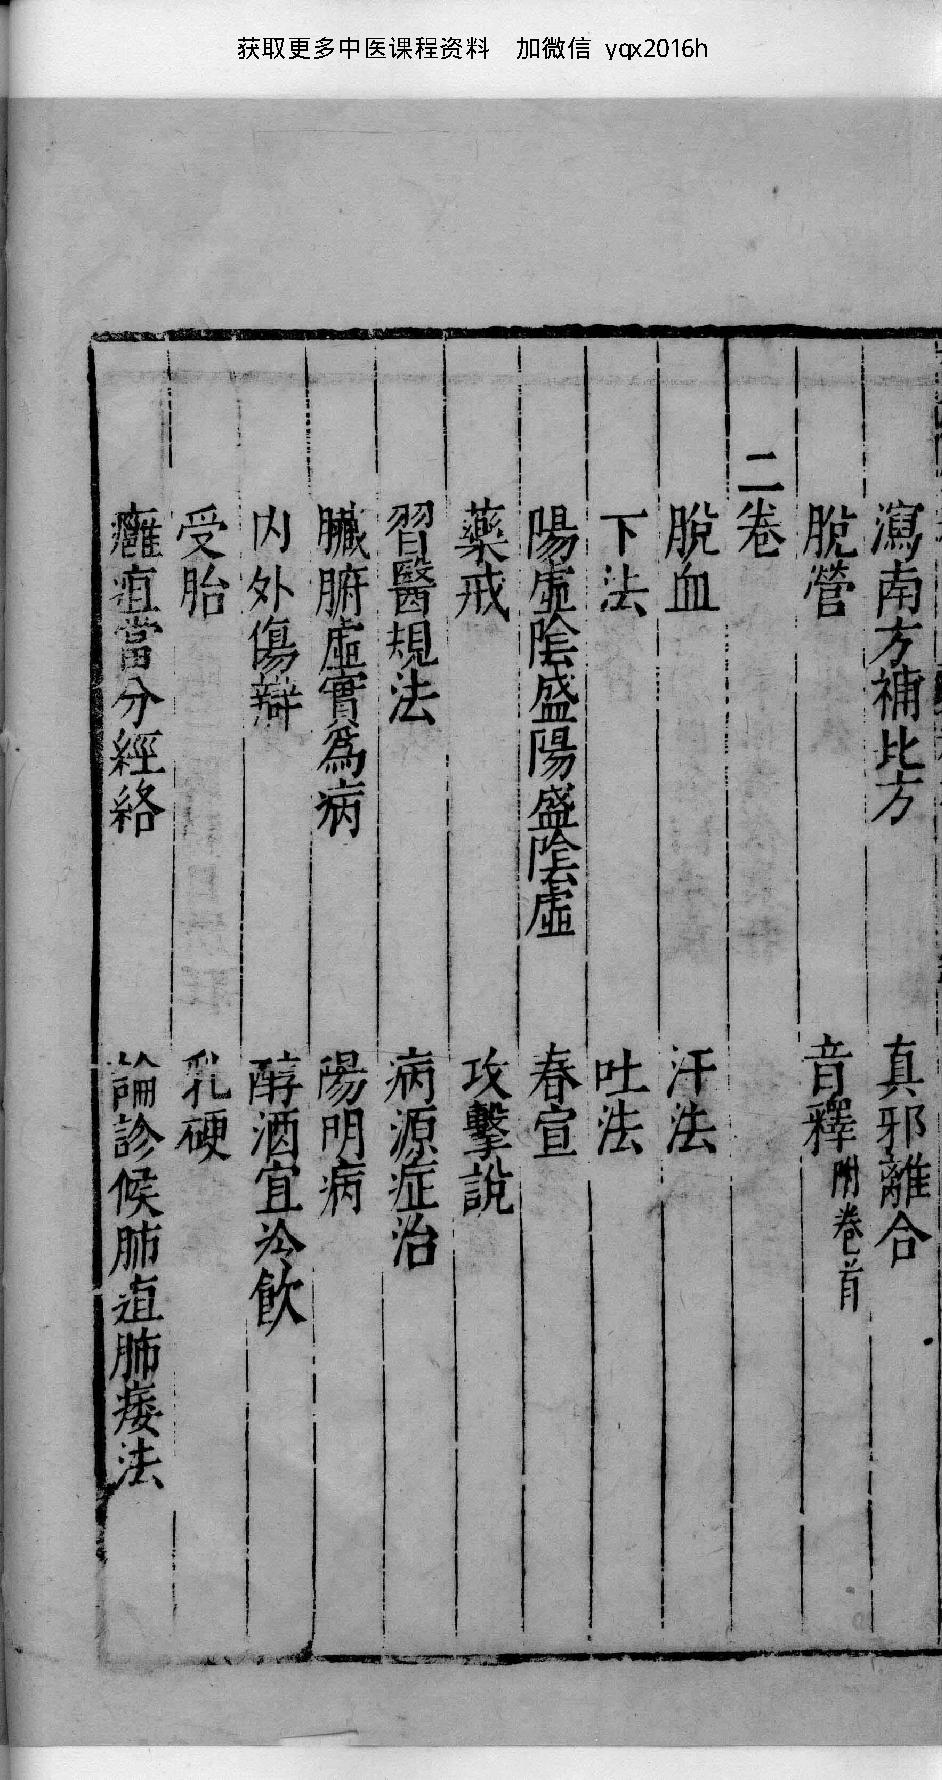 获取更多中医课程资料 加微信 yqx2016h
瀉南方補北方 真邪離合
脫營 音釋附卷首
二卷
脫血 汗法
下法 吐法
陽虛陰盛陽盛陰虛 春宣
藥戒 攻擊說
習醫規法 病源症治
臟腑虛實為病 陽明病
內外傷辯 醇酒宜冷飲
受胎 乳硬
癰疽當分經絡 論診候肺疽肺痿法